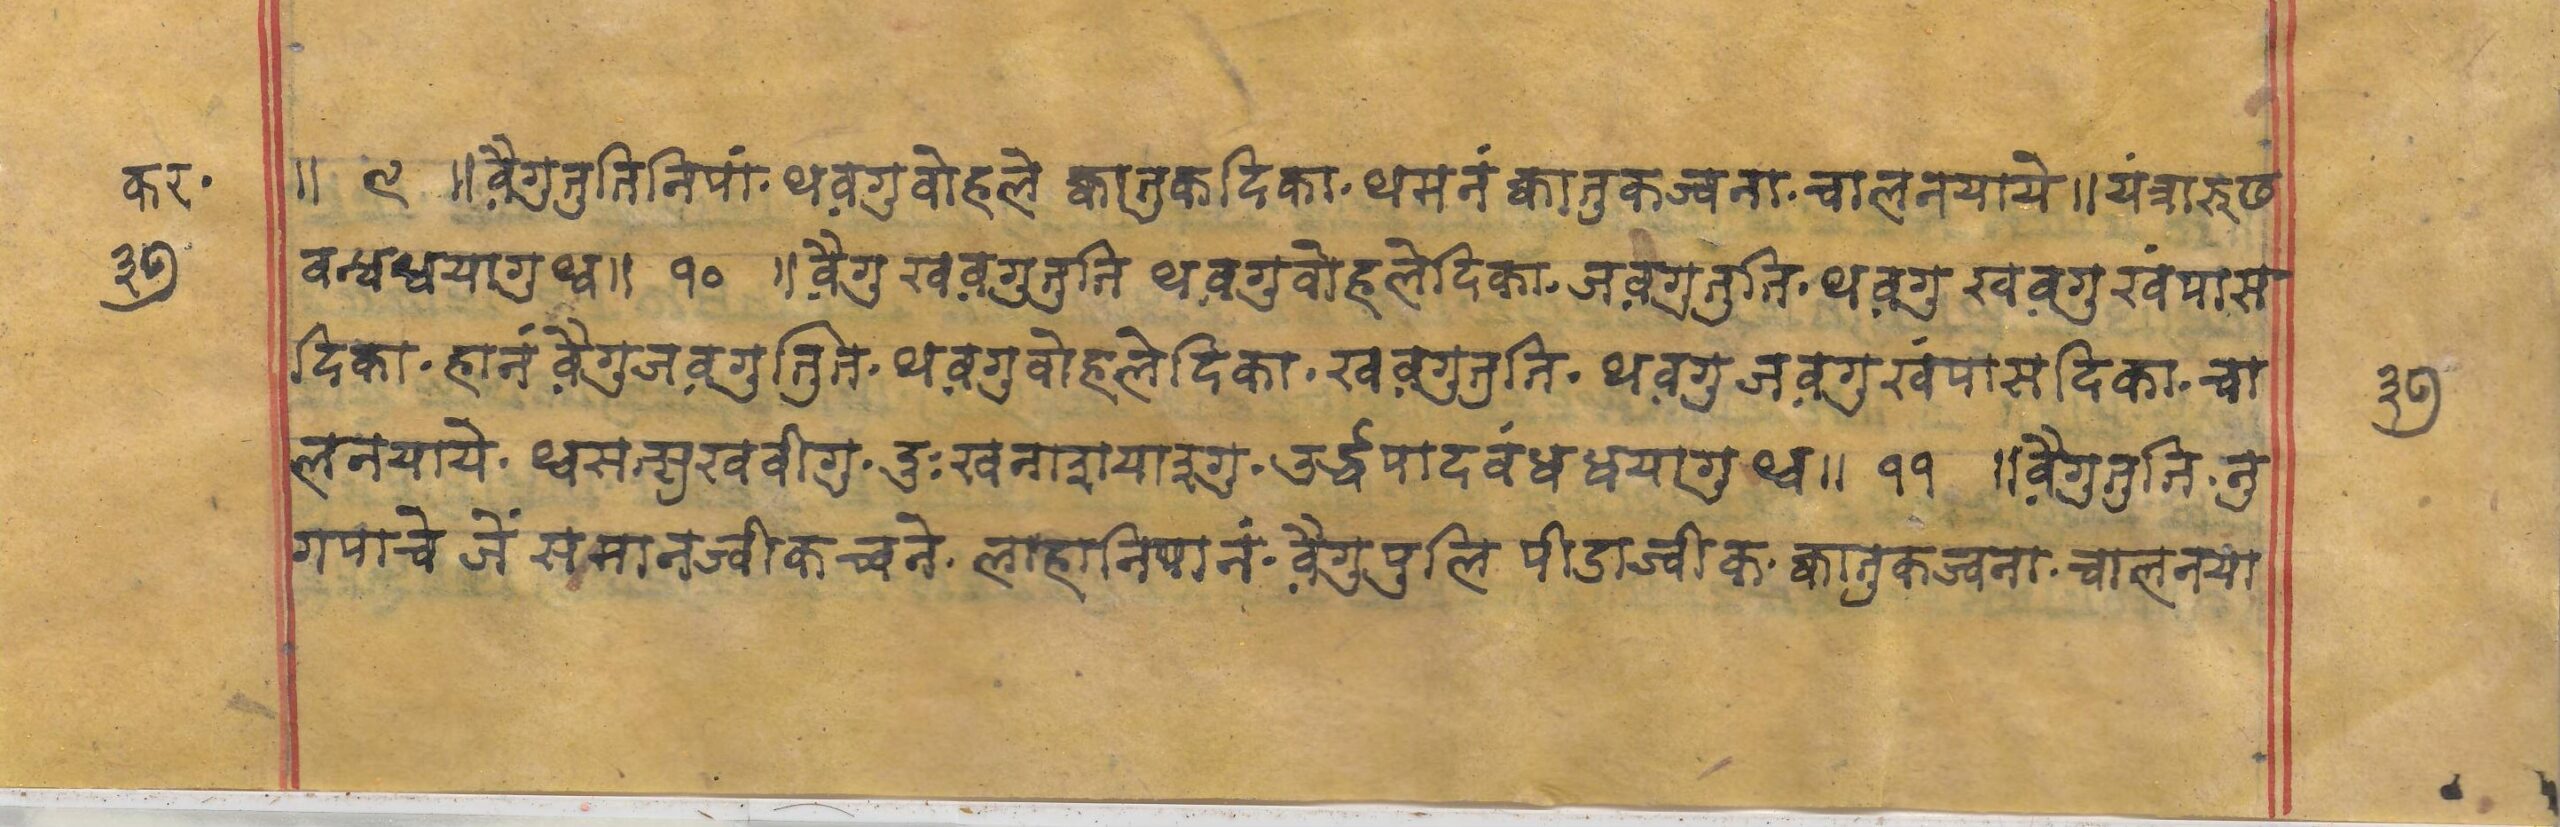 कर.
३७
॥ ९ ॥ वैगु तुतिनिपां. थवगु वोहले क्वातुकदिका. थमनं क्वातुकज्वना. चालनयाये ॥ यंत्रारुछ
वन्धधयागु थ्व ॥ १० ॥ वैगु खवगुतुति थवगुवोहलेदिका. जवगुतुति. थवगु खवगु खंपास
दिका. हानं वैगुजवगु तुति. थवगुवोहलेदिका. खवगुतुति. थवगु जवगु खंपासदिका. चा
लनयाये. थ्वसत्सुखवीगु. दुःखनाशयाइगु. उर्द्धपादवंधधयागु थ्व ॥ ११ ॥ वैगुतुति. तु
गपाचे जें समानज्वीकच्वने. लाहानिपानं. वैगुपुलि पीडाज्वीक. क्वातुकज्वना. चालनया
३७